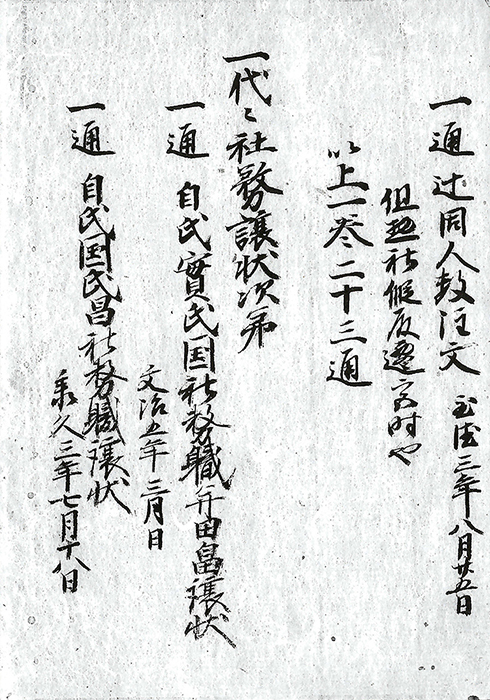 一通 辻固人数注文 至徳三年八月廿五日
但惣社假殿遷宮時也
以上一巻二十三通
一代々社務譲状次第
一通 自氏實氏国社務職并田畠譲状
文治五年三月日
一通 自氏国氏昌社務職譲状
承久三年七月十八日